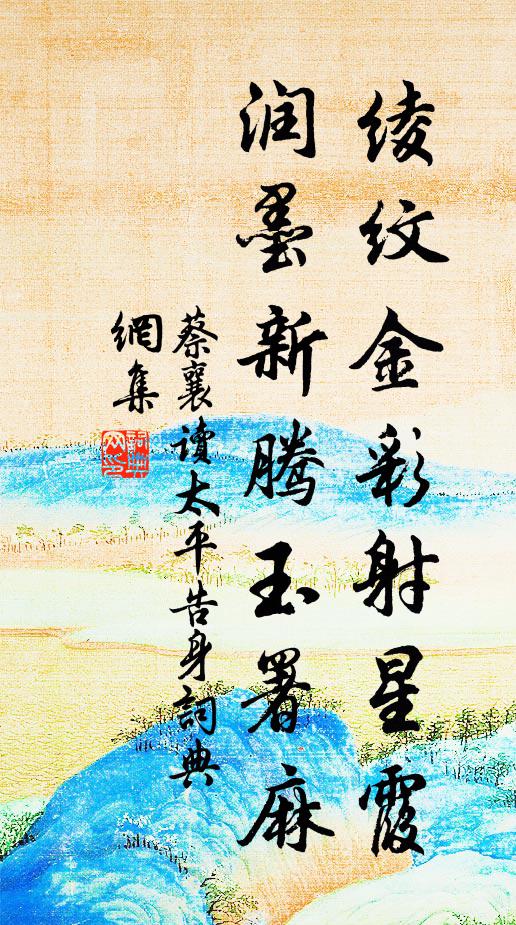 绫纹金彩射星霞
润墨新腾玉署麻
蔡襄讀太平告身詞典
網集